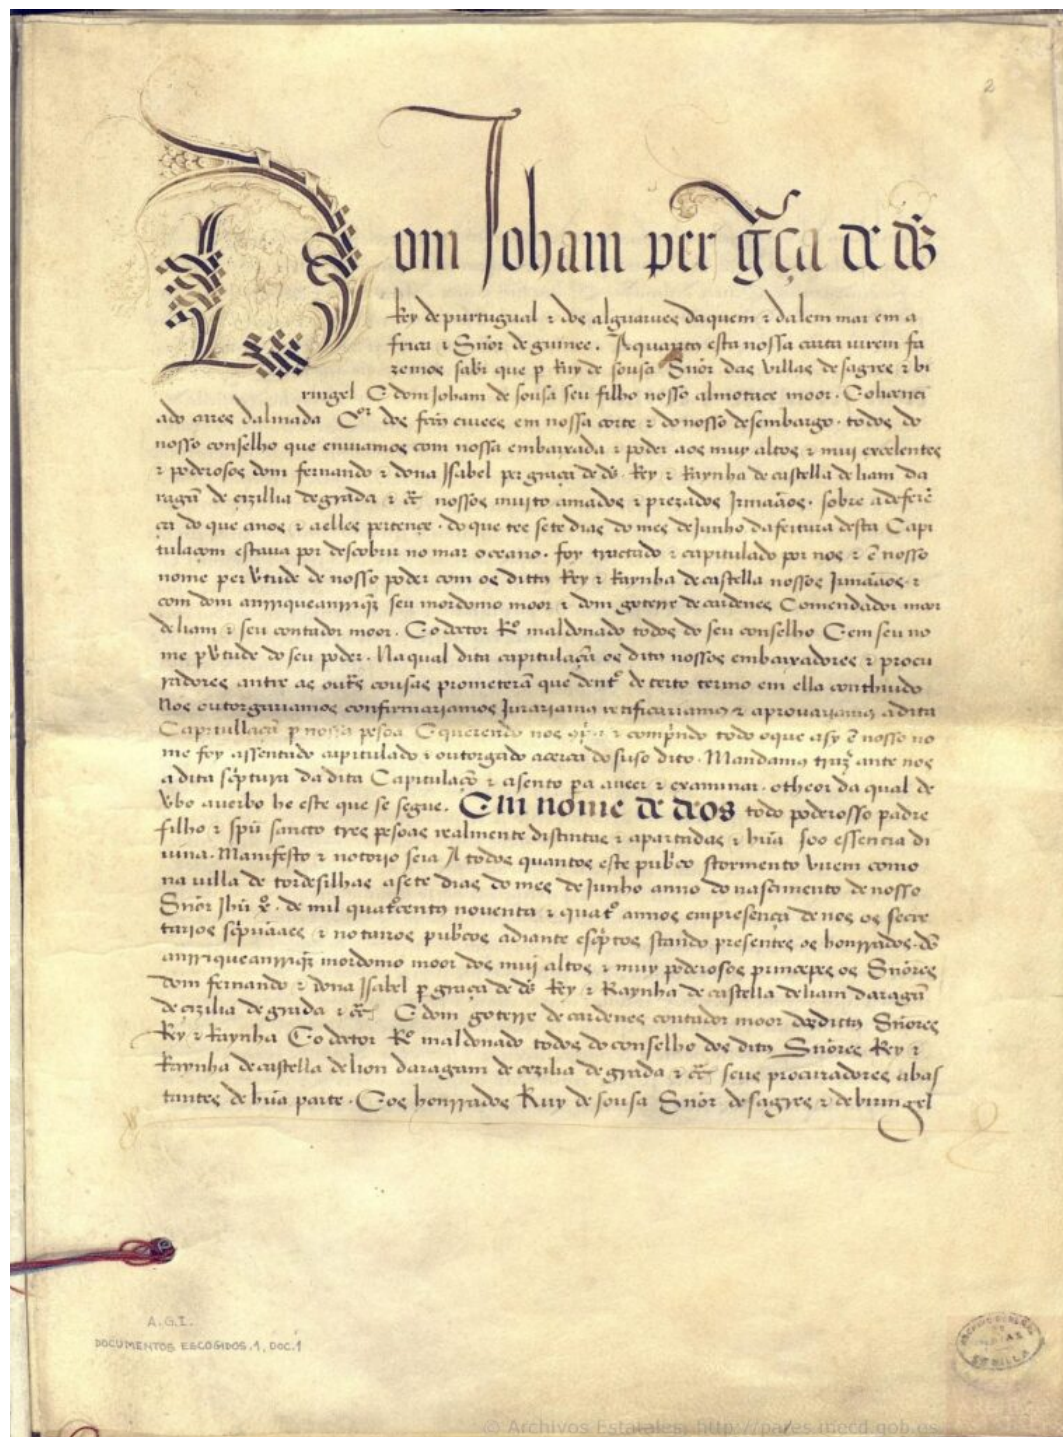 2
Dom Joham per gr̃ça de ds̃
Rey de purtugual ⁊ dos alguarues daquem ⁊ dalem mar em a
frica ⁊ Sñor de guinee. A quantos esta nossa carta virem fa
zemos saber que p Ruy de sousa Sñor das villas de sagres ⁊ bi
ringel E dom Joham de sousa seu filho nosso almotace moor. E o licenci
ado aires dalmada Cor dos feitos civees em nossa corte ⁊ do nosso desembargo. todos do
nosso conselho que enviamos com nossa embaixada ⁊ poder aos muy altos ⁊ mui excelentes
⁊ poderosos dom fernando ⁊ dona Isabel per graça de ds̃. Rey ⁊ Raynha de castella de liam da
ragã de cizillia de grãda ⁊ cr̃ nossos muito amados ⁊ prezados Irmãaos. sobre a deferẽ
ça do que a nos ⁊ a elles pertençe. do que tee sete dias do mes de Junho da feitura desta Capi
tulaçom estava por descobrir no mar oceano. foy tractado ⁊ capitulado por nos ⁊ ẽ nosso
nome per v̾tude de nosso poder com os dittos Rey ⁊ Raynha de castella nossos Irmãaos. ⁊
com dom anrrique anrriq̃z seu mordomo moor ⁊ dom goterre de cardenes Comendador moor
de liam ⁊ seu contador moor. E o doctor Ro maldonado todos do seu conselho E em seu no
me p v̾tude do seu poder. Na qual dita capitulaçã os ditos nossos embaixadores ⁊ procu
radores antre as outras cousas prometerã que dentro de certo termo em ella conthiudo
Nos outorgariamos confirmariamos Jurariamos retificariamos ⁊ aprovariamos a dita
Capitullaçã p nossa pesoa E querendo nos ⁊ comprindo todo o que asy ẽ nosso no
me foy assentado capitulado ⁊ outorgado acerca do suso dito. Mandamos trazer ante nos
a dita scriptura da dita Capitulaçõ ⁊ asento pa a veer ⁊ examinar. o theor da qual de
v̾bo a verbo he este que se segue. Em nome de deos todo poderosso padre
filho ⁊ spũ sancto tres pesoas realmente distintas ⁊ apartadas ⁊ hũa soo essencia di
uina. Manifesto ⁊ notorio seia A todos quantos este pub̃co stormento virem como
na villa de tordesilhas a sete dias do mes de Junho anno do nascimento de nosso
Sñor Jhũ x̃o. de mil quatrcentos noventa ⁊ quatro annos em presença de nos os secre
tarios scripvãaes ⁊ notairos pub̃cos adiante escriptos stando presentes os honrrados. dõ
anrrique anrriq̃z mordomo moor dos mui altos ⁊ muy poderosos principes os Sñores
dom fernando ⁊ dona Isabel p graça de ds̃ Rey ⁊ Raynha de castella de liam daragã
de cizilia de grãda ⁊ cr̃ E dom goterre de cardenes contador moor dos dittos Sñores
Rey ⁊ Raynha E o doctor Ro maldonado todos do conselho dos ditos Sñores Rey ⁊
Raynha de castella de lion daragam de cezilia de grãda ⁊ cr̃ seus procuradores abas
tantes de hũa parte. E os honrrados Ruy de sousa Sñor de sagres ⁊ de biringel
A.G.I.
DOCUMENTOS ESCOGIDOS.1, DOC.1
© Archivos Estatales, http://pares.mecd.gob.es